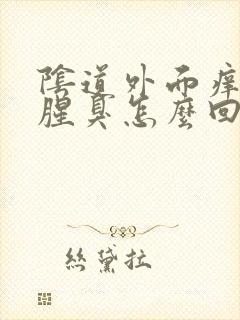 陰道外而痒
腥臭怎麼回
絲黛拉